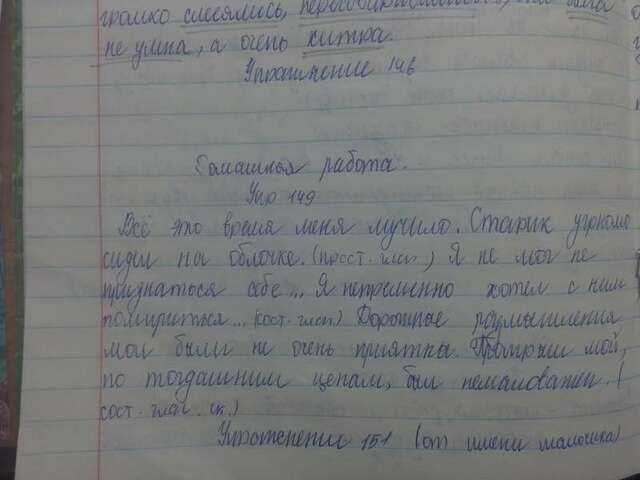 громко смеялись,
не умна, а очень хитра.
Упражнение 146
Домашняя работа.
Упр 149
Всё это время меня мучило. Старик угрюмо
сидел на облочке. (прост. глаг.) Я не мог не
признаться себе... Я непременно хотел с ним
помириться... (сост. глаг.) Дорожные размышления
мои были не очень приятны. Проигрыш мой,
по тогдашним ценам, был немаловажен. (
сост. глаг. ск.)
Упражнение 151 (от имени мальчика)